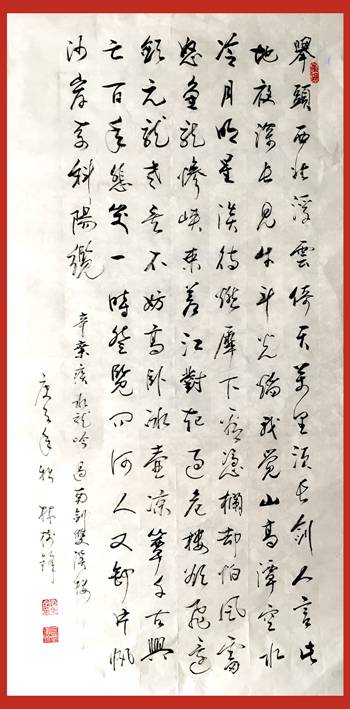 舉頭西北浮雲倚天萬里須長劍人言此
地夜深長見牛斗光焰我覺山高潭空水
冷月明星淡待燃犀下看憑欄却怕風雷
怒魚龍慘峽束蒼江對起過危樓欲飛還
斂元龍老矣不妨高臥冰壺涼簟千古興
亡百年悲笑一時登覽問何人又卸片帆
沙岸系斜陽纜
辛棄疾水龍吟 過南劍雙溪樓
庚子年秋 林